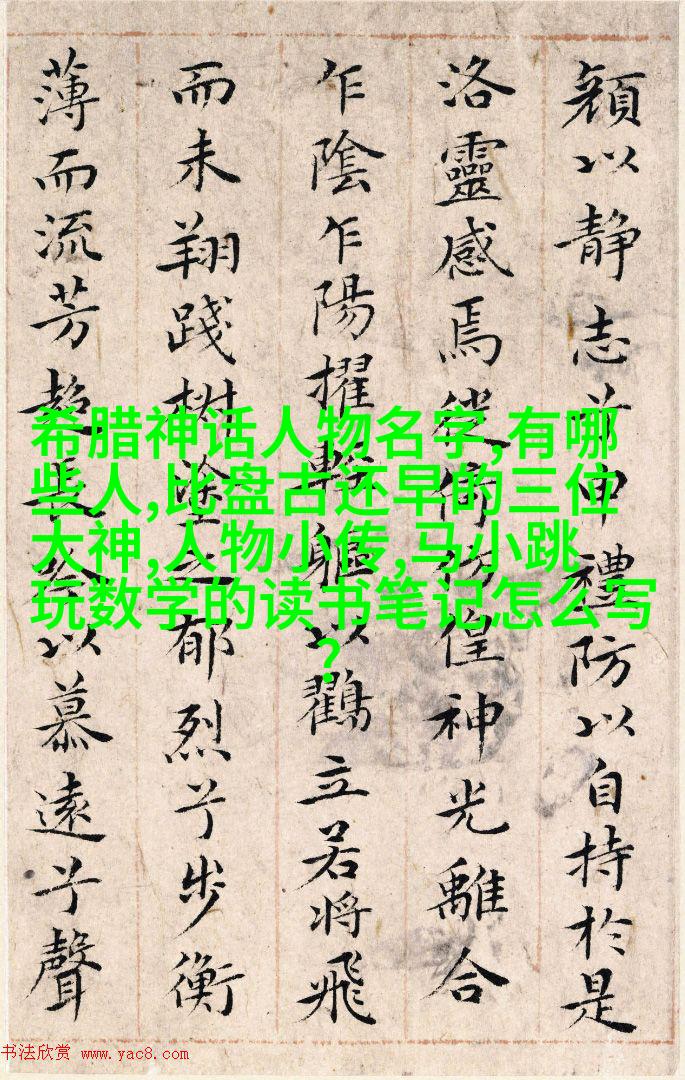 顔以静志兮申禮防以自持於是
洛靈感焉徙倚彷徨神光離合
乍陰乍陽擢輕軀以鶴立若將飛
而未翔踐椒塗之郁烈兮步衡
薄而流芳超長吟以慕遠兮聲
希腊神话人物名字,有哪
些人,比盘古还早的三位
大神,人物小传,马小跳
玩数学的读书笔记怎么写
?
书法欣赏 www.yac8.com